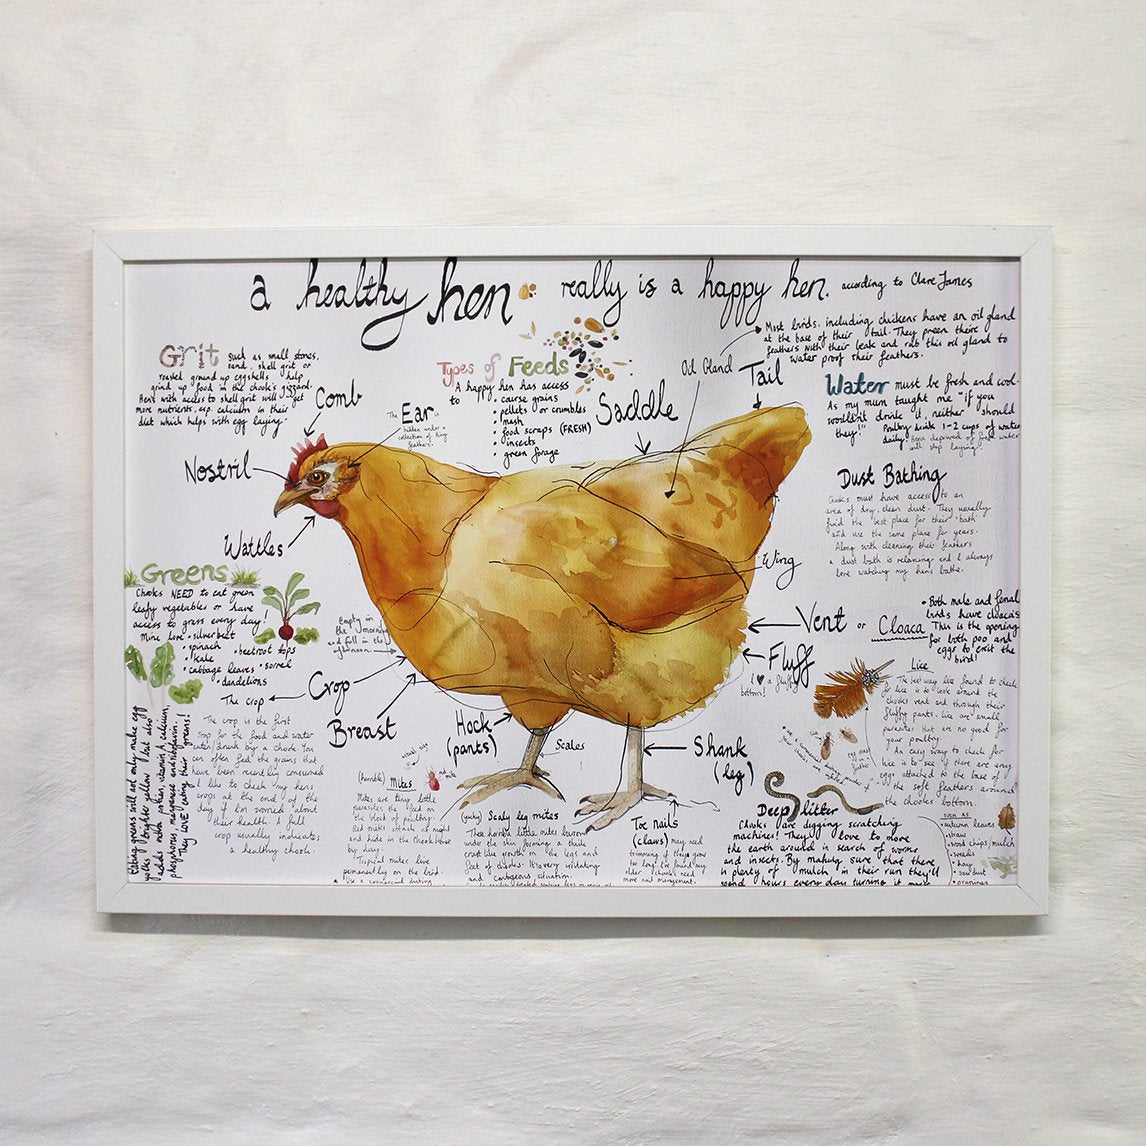 a healthy hen really is a happy hen. according to Clare James
Grit such as small stones,
sand, shell grit or
roasted ground up eggshells help
grind up food in the chook's gizzard.
Hens with access to shell grit will get
more nutrients, esp. calcium in their
diet which helps with egg laying.
Comb
Ear
hidden under a
collection of tiny
feathers.
Nostril
Wattles
Types of Feeds
A happy hen has access
to • course grains
• pellets or crumbles
• mash
• food scraps (FRESH)
• insects
• green forage
Saddle
Oil Gland
Tail
Most birds, including chickens have an oil gland
at the base of their tail. They preen theire
feathers with their beak and rub this oil gland to
water proof their feathers.
Water must be fresh and cool-
As my mum taught me "if you
wouldn't drink it, neither should
they!" Poultry drink 1-2 cups of water
daily. Hens deprived of fresh water
will stop laying!
Dust Bathing
Chooks must have access to an
area of dry, clean dust. They usually
find the best place for their 'bath'
and use the same place for years.
Along with cleaning their feathers
a dust bath is relaxing and I always
love watching my hens bathe.
Wing
Vent or Cloaca
• Both male and femal
birds have cloaca's
This is the opening
for both poo and
eggs to exit the
bird!
Fluff
I ♥ a fluffy
bottom!
Greens
Chooks NEED to eat green
leafy vegetables or have
access to grass every day!
Mine love • silverbeet
• spinach • beetroot tops
• kale • sorrel
• cabbage leaves
• dandelions
Empty in
the morning
and full in the
afternoon.
Crop
The crop
The crop is the first
stop for the food and water
eaten/drunk by a chook. You
can often feel the grains that
have been recently consumed
I like to check my hens
crops at the end of the
day if I'm worried about
their health. A full
crop usually indicates
a healthy chook.
Eating greens will not only make egg
yolks brighter yellow but also
adds more protein, vitamin A, calcium,
phosphorus, manganese and riboflavin.
They LOVE eating their greens!
Breast
Hock
(pants)
Scales
Shank
(leg)
(horrible) Mites
Mites are tiny little
parasites that feed on
the blood of poultry.
Red mites attack at night
and hide in the chook house
by day.
Tropical mites live
permanently on the bird.
(yucky) Scaly leg mites
These horrid little mites burrow
under the skin forming a thick
crust like growth on the legs and
feet of chooks. It's very irritating
and contageous situation.
Toe nails
(claws) may need
trimming if they grow
too long. I've found my
older chooks need
more nail management.
Lice
The best way I've found to check
for lice is to look around the
chooks vent and through their
fluffy pants. Lice are small
parasites that are no good for
your poultry.
An easy way to check for
lice is to see if there are any
eggs attached to the base of
the soft feathers around
the chooks bottom.
Deep litter
Chooks are digging scratching
machines! They'll love to move
the earth around in search of worms
and insects. By making sure that there
is plenty of mulch in their run they'll
spend hours every day turning it
such as
• autumn leaves
• straw
• wood chips/mulch
• weeds
• hay
• saw dust
• prunings